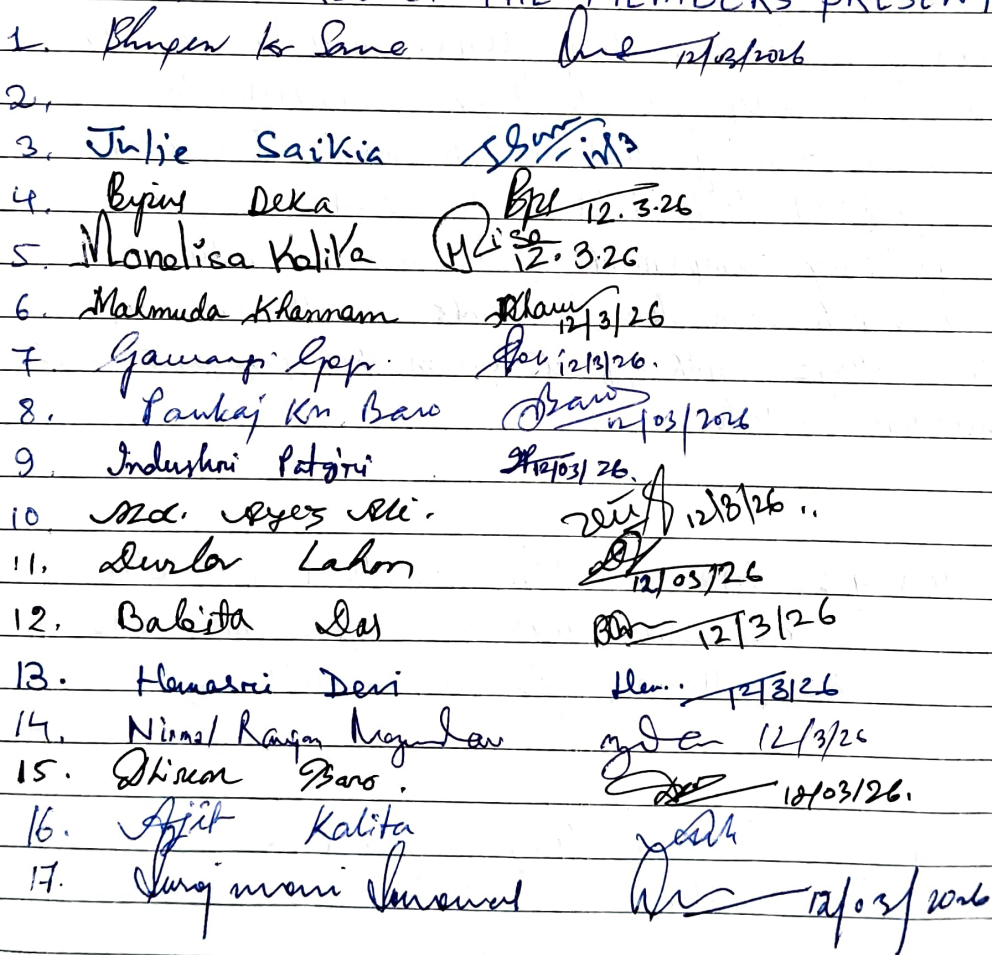 THE MEMBERS PRESENT
1. Bhupen Kr Sane 12/03/2026
2.
3. Julie Saikia 12/3
4. Bipin Deka 12.3.26
5. Monalisa Kalita 12.3.26
6. Mahmuda Khannam 12/3/26
7. Gop. 12/3/26.
8. Pankaj Kr. Baro Baro 12/03/2026
9. Indushri Patgiri 12/03/26.
10 Md. Ayez Ali. 12/3/26
11. Durlov Lahon 12/03/26
12. Babita Das 12/3/26
13. Hemasri Devi Hem.. 12/3/26
14. Nirmal Ranjan Mazumdar 12/3/26
15. Dhiren Baro. 12/03/26.
16. Ajit Kalita
17. Surajmani Sonowal 12/03/2026